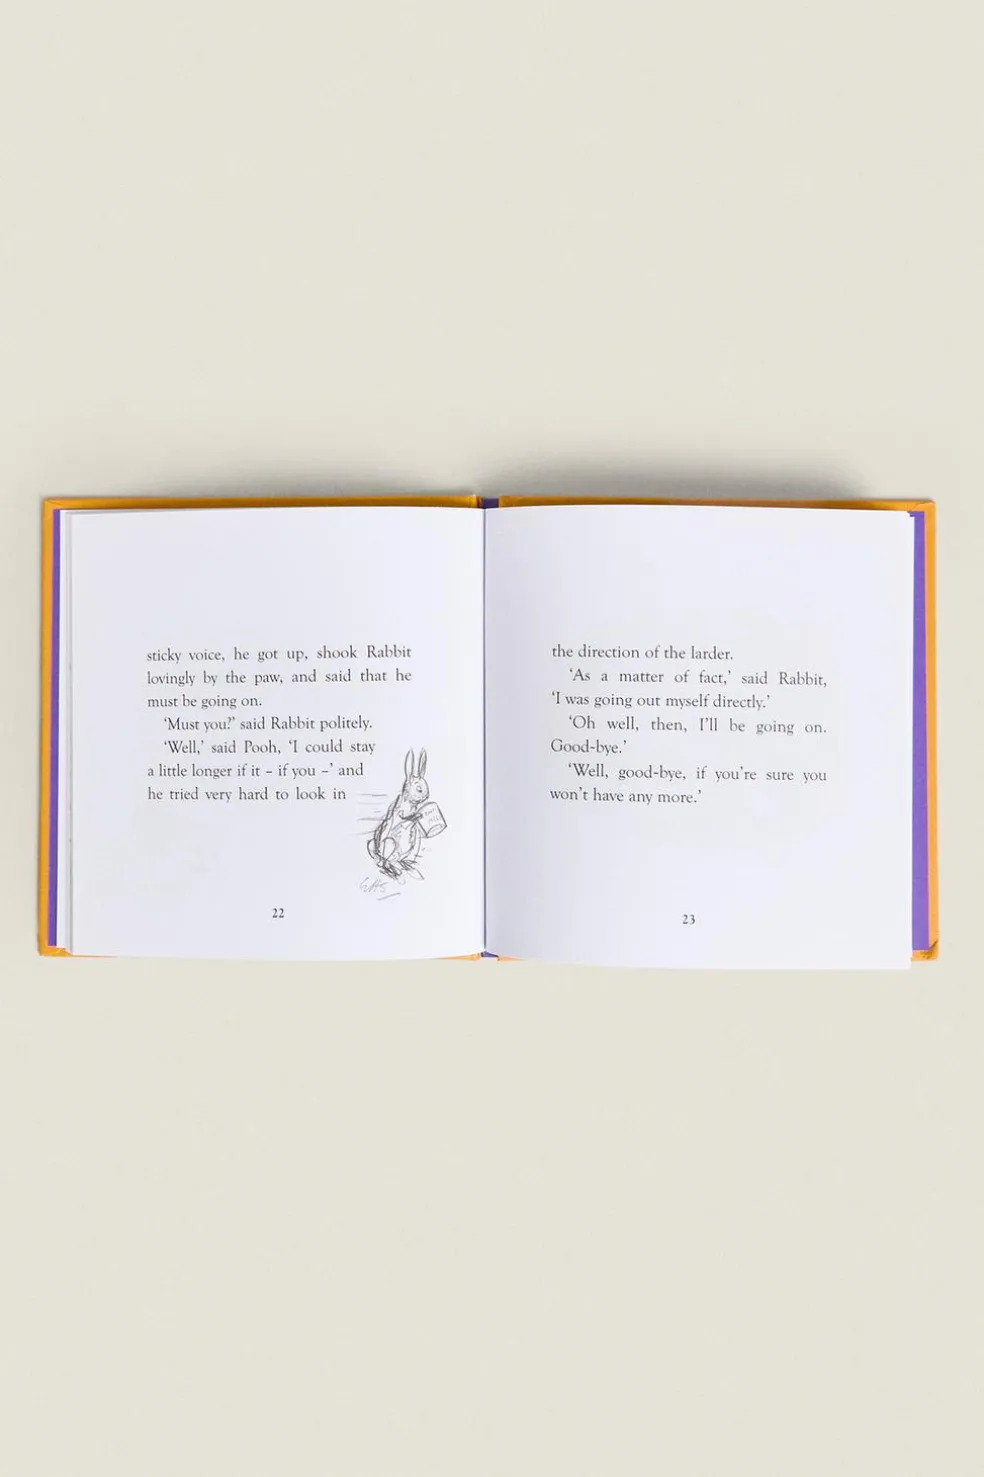 sticky voice, he got up, shook Rabbit
lovingly by the paw, and said that he
must be going on.
‘Must you?’ said Rabbit politely.
‘Well,’ said Pooh, ‘I could stay
a little longer if it – if you –’ and
he tried very hard to look in
22
the direction of the larder.
‘As a matter of fact,’ said Rabbit,
‘I was going out myself directly.’
‘Oh well, then, I’ll be going on.
Good-bye.’
‘Well, good-bye, if you’re sure you
won’t have any more.’
23